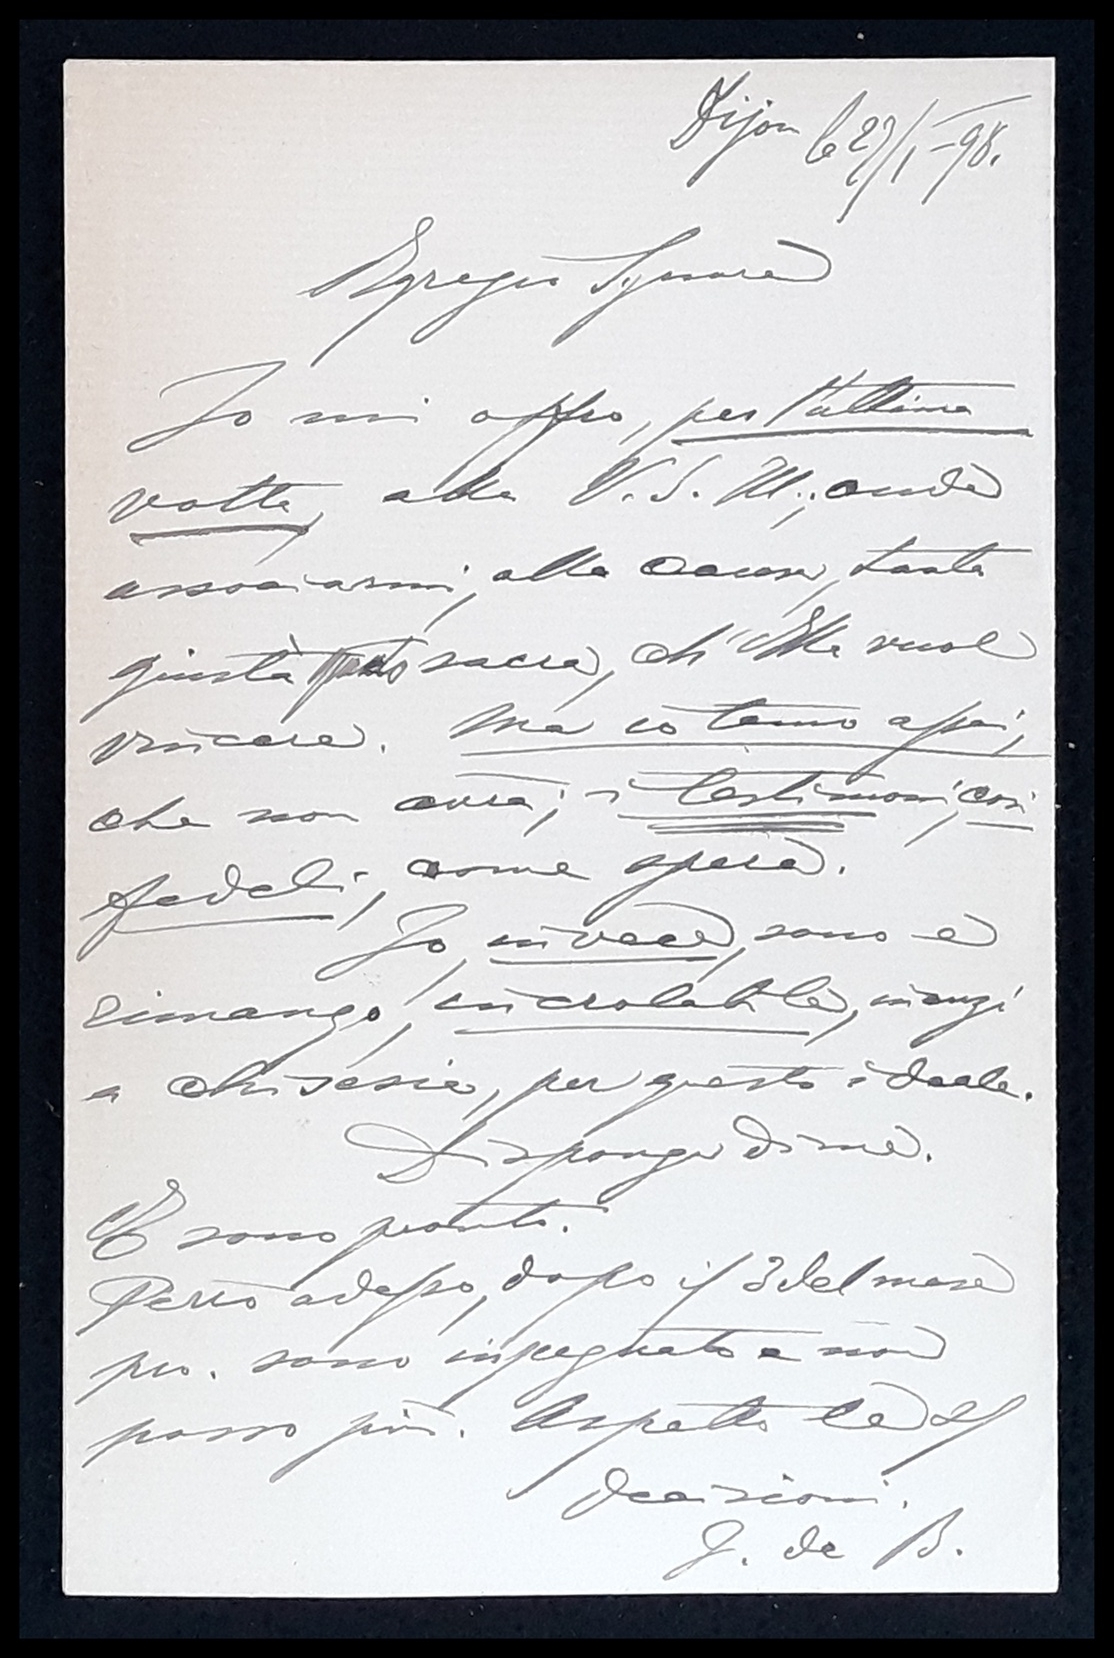 Dijon le 27/I-98.
Egregio Signore
Io mi offro, per l'ultima
volta, alla V. S. Ill.; onde
associarmi, alla causa, tanto
giusta sacra, ch'Ella vuol
vincere. Ma io temo assai,
che non avrà, i testimoni, così
fedeli, come spera.
Io, invece, sono e
rimango, incrolabile, inanzi
a chisisia, per questo ideale.
Disponga di me.
E sono pronto.
Però adesso, dopo il 3 del mese
pro. sono inpegnato e non
posso più. Aspetto le
decisioni.
J. de B.